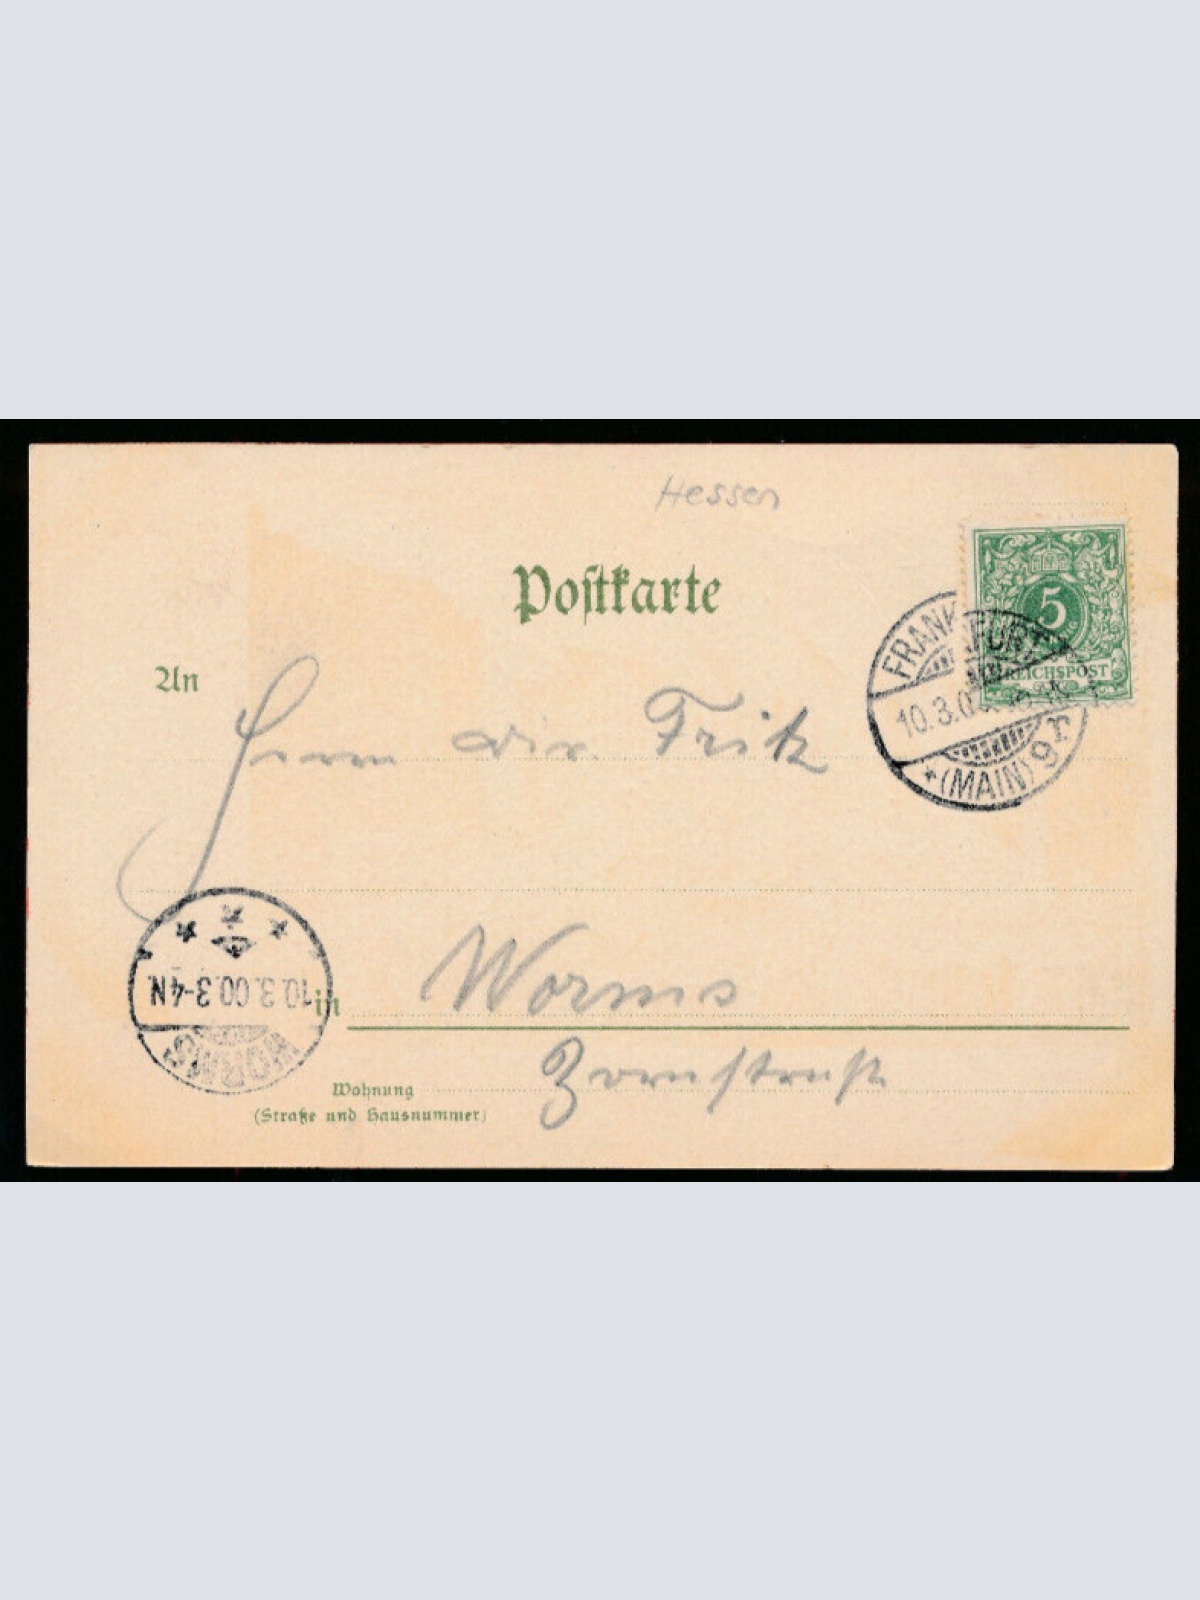 Hessen
Postkarte
5
REICHSPOST
FRANKFURT
10.3.0
*(MAIN) 9r
An
Herrn Dir. Fritz
10.3.00.3-4N.
WORMS
in Worms
Wohnung
(Straße und Hausnummer)